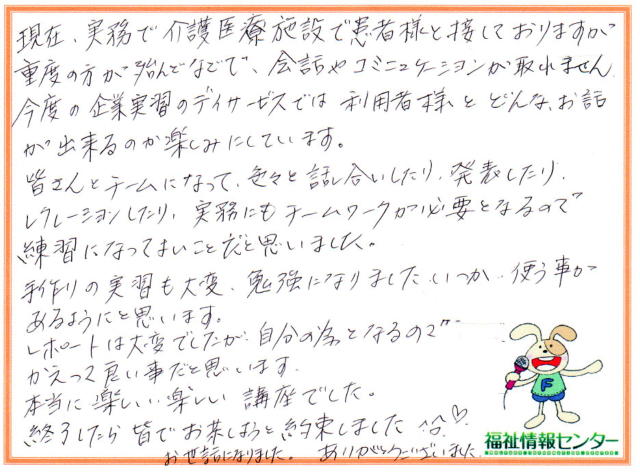 現在、実務で介護医療施設で患者様と接しておりますが
重度の方が殆んどなどで、会話やコミニュケーションが取れません
今度の企業実習のデイサービスでは利用者様とどんなお話
が出来るのか楽しみにしています。
皆さんとチームになって、色々と話し合いしたり、発表したり、
レクレーションしたり、実務にもチームワークが必要となるので
練習になってよいことだと思いました。
手作りの実習も大変、勉強になりました。いつか、使う事が
あるようにと思います。
レポートは大変でしたが、自分の為となるので
かえって良い事だと思います。
本当に楽しい楽しい講座でした。
終了したら皆でお茶しようと約束しました ^o^♡
お世話になりました。ありがとうございました。
F
福祉情報センター